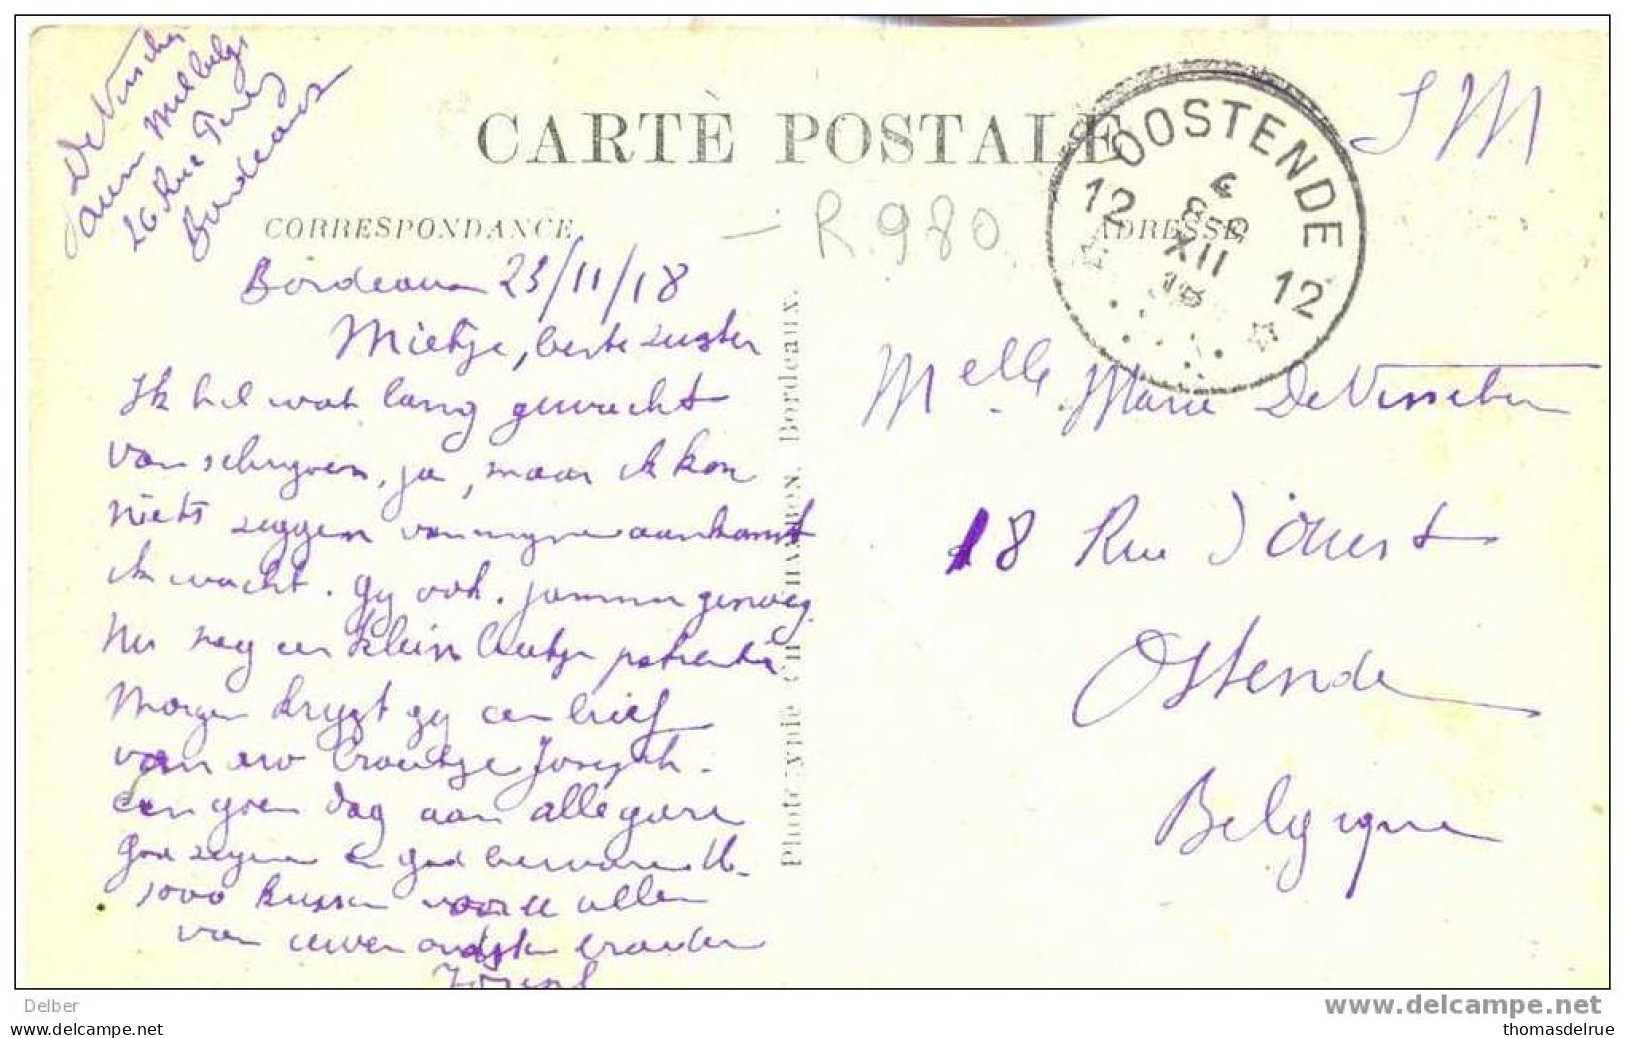 De Visscher
aum Mil belge
26 Rue Turc
Bordeaux
CARTE POSTALE
S M
OOSTENDE
12 12
XII
CORRESPONDANCE
R 980
ADRESSE
Bordeaux 23/11/18
Mietje, beste zuster
Ik heb wat lang gewacht
van schryven, ja, maar ik kon
niets zeggen van myne aankomst
ik wacht. gy ook. jammer genoeg
Nu nog een klein beetje patientie
Morgen krygt gy een brief
van uw broertje Joseph.
een goen dag aan allegare
God zegene en God beware U.
1000 kussen voor u allen
van uwen oudsten broeder
Joseph
Phototypie CH. CHAMBON. Bordeaux.
Melle Marie De Visscher
18 Rue d'Ouest
Ostende
Belgique
Delber
delcampe.net
www.delcampe.net
thomasdelrue